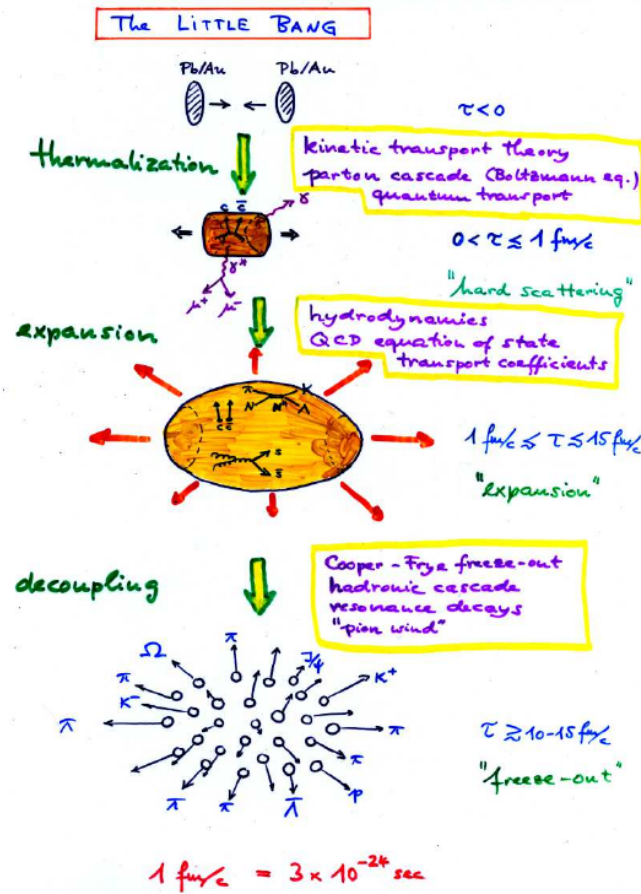 The LITTLE BANG
Pb/Au Pb/Au
τ<0
thermalization
kinetic transport theory
parton cascade (Boltzmann eq.)
quantum transport
c c̄ γ
0 < τ ≲ 1 fm/c
γ*
μ+ μ-
"hard scattering"
expansion
hydrodynamics
QCD equation of state
transport coefficients
π K
c c̄ N N* Λ
1 fm/c ≲ τ ≲ 15 fm/c
s
s̄
"expansion"
decoupling
Cooper-Frye freeze-out
hadronic cascade
resonance decays
"pion wind"
Ω π J/ψ
π K+
K-
π π
τ ≳ 10-15 fm/c
π
"freeze-out"
π π Λ̄ p
1 fm/c = 3 × 10^-24 sec